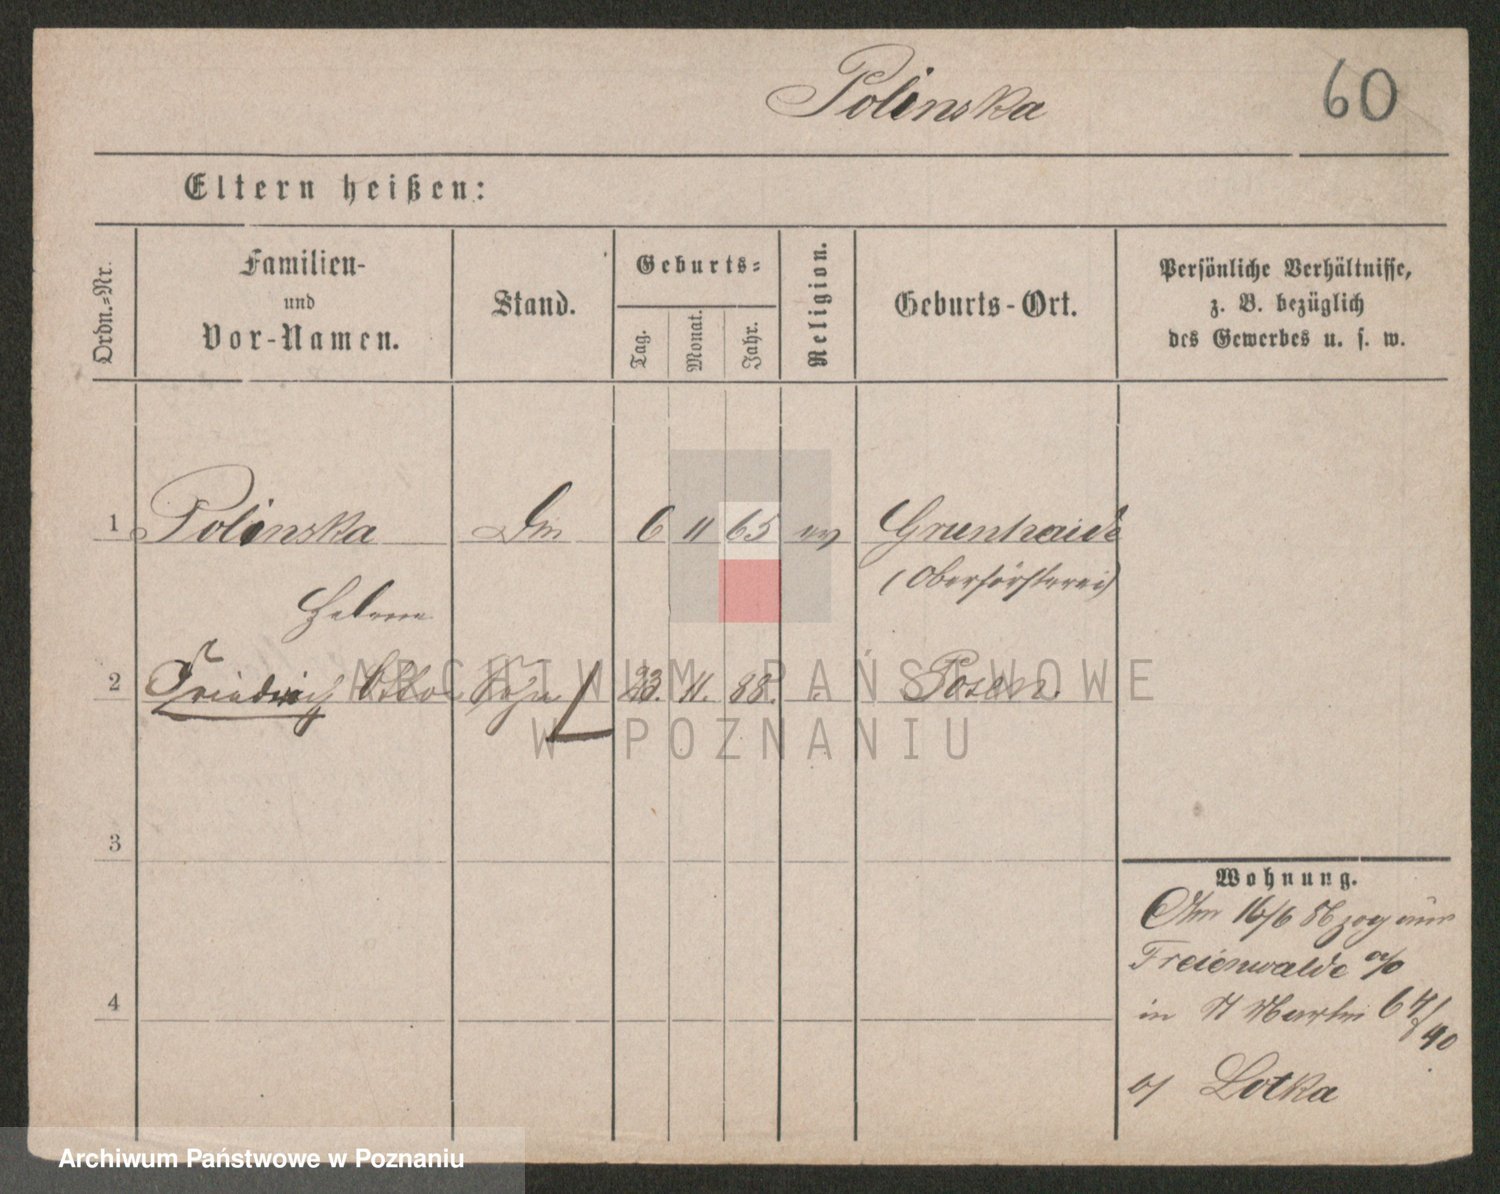 Polinska
60
Eltern heißen:
Ordn.=Nr.
Familien-
und
Vor-Namen.
Stand.
Geburts=
Tag.
Monat.
Jahr.
Religion.
Geburts-Ort.
Persönliche Verhältnisse,
z. B. bezüglich
des Gewerbes u. s. w.
1 Polinska 6 11 65 ev Grunhaide
(Oberförsterei)
Helene
2 Friedrich Otto Sohn 23. 11. 88. Posen.
ARCHIWUM PAŃSTWOWE
W POZNANIU
3
4
Wohnung.
Am 16/6 zog aus
Freienwalde a/o
in St Martin 64
b/ Lotka
Archiwum Państwowe w Poznaniu